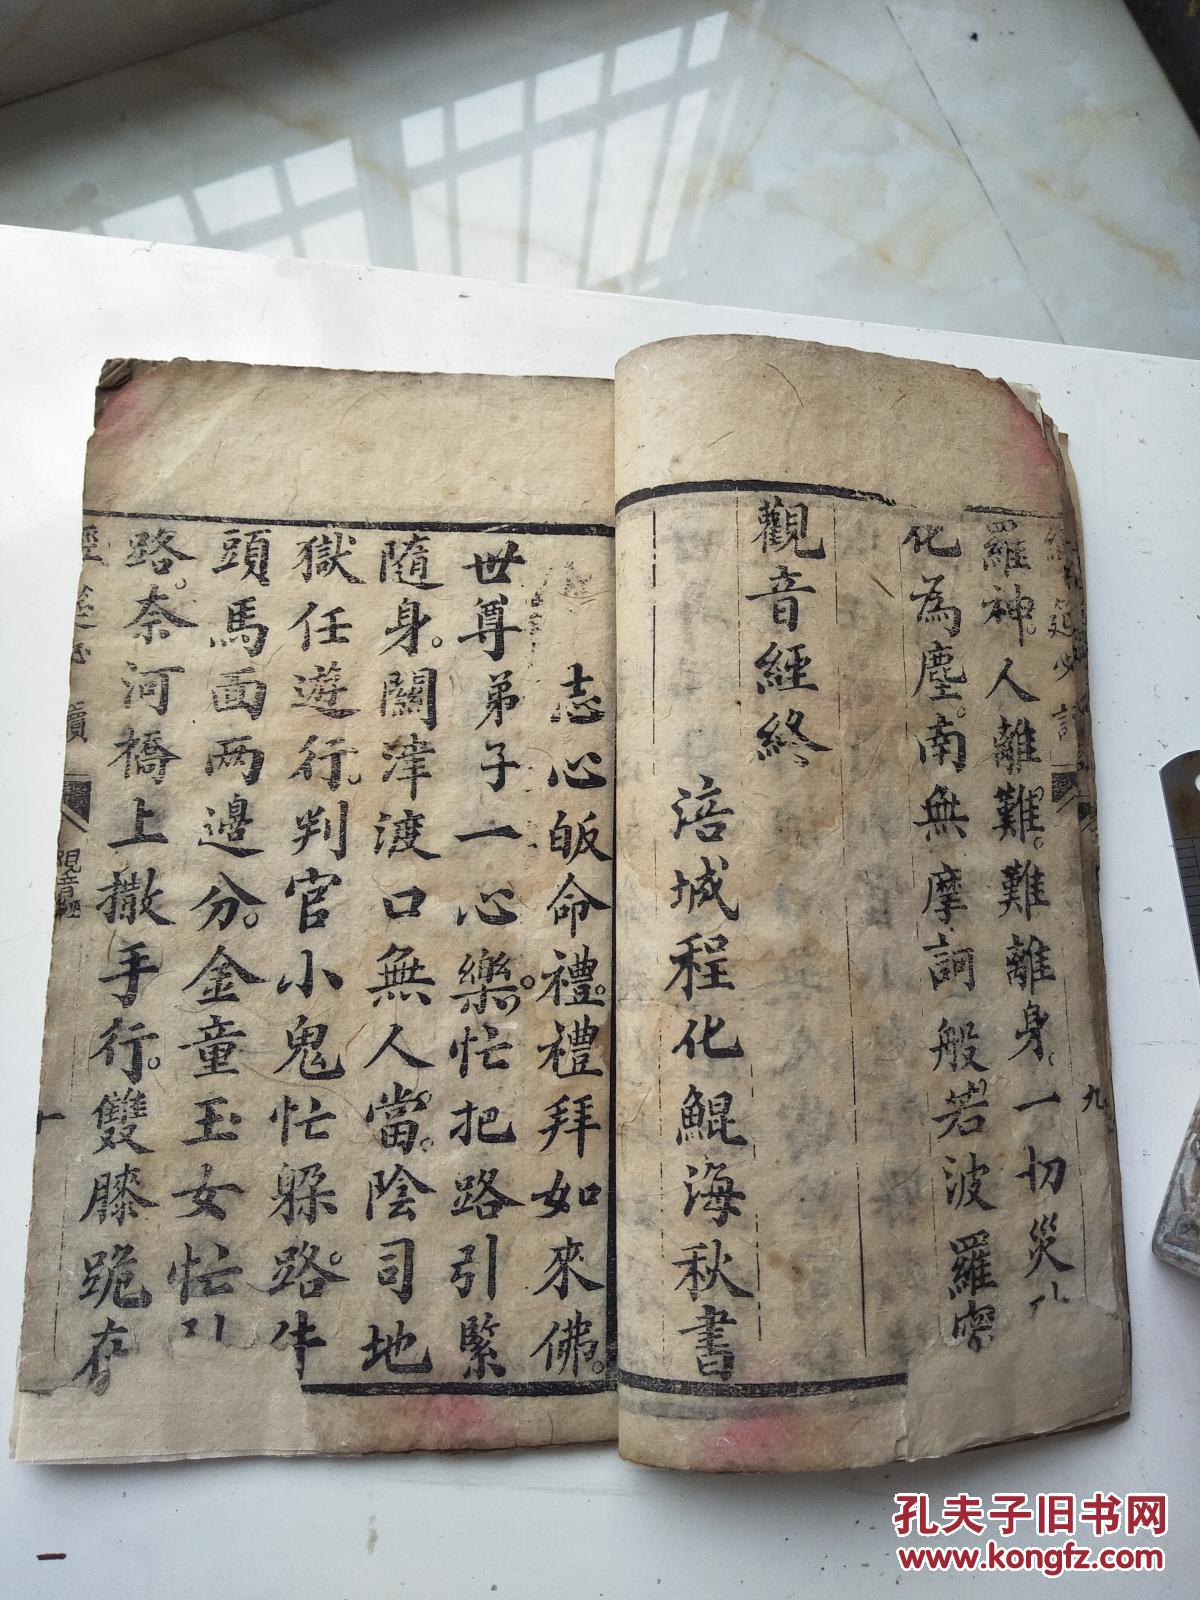 羅神。人離難。難離身。一切災
化為塵。南無摩訶般若波羅密
觀音經終
涪城程化鯤海秋書
志心皈命禮。禮拜如來佛。
世尊弟子一心樂。忙把路引緊
隨身。關津渡口無人當。陰司地
獄任遊行。判官小鬼忙躲路。牛
頭馬面两邊分。金童玉女忙
路。奈河橋上撒手行。雙膝跪在
觀音經
九
十
孔夫子旧书网
www.kongfz.com